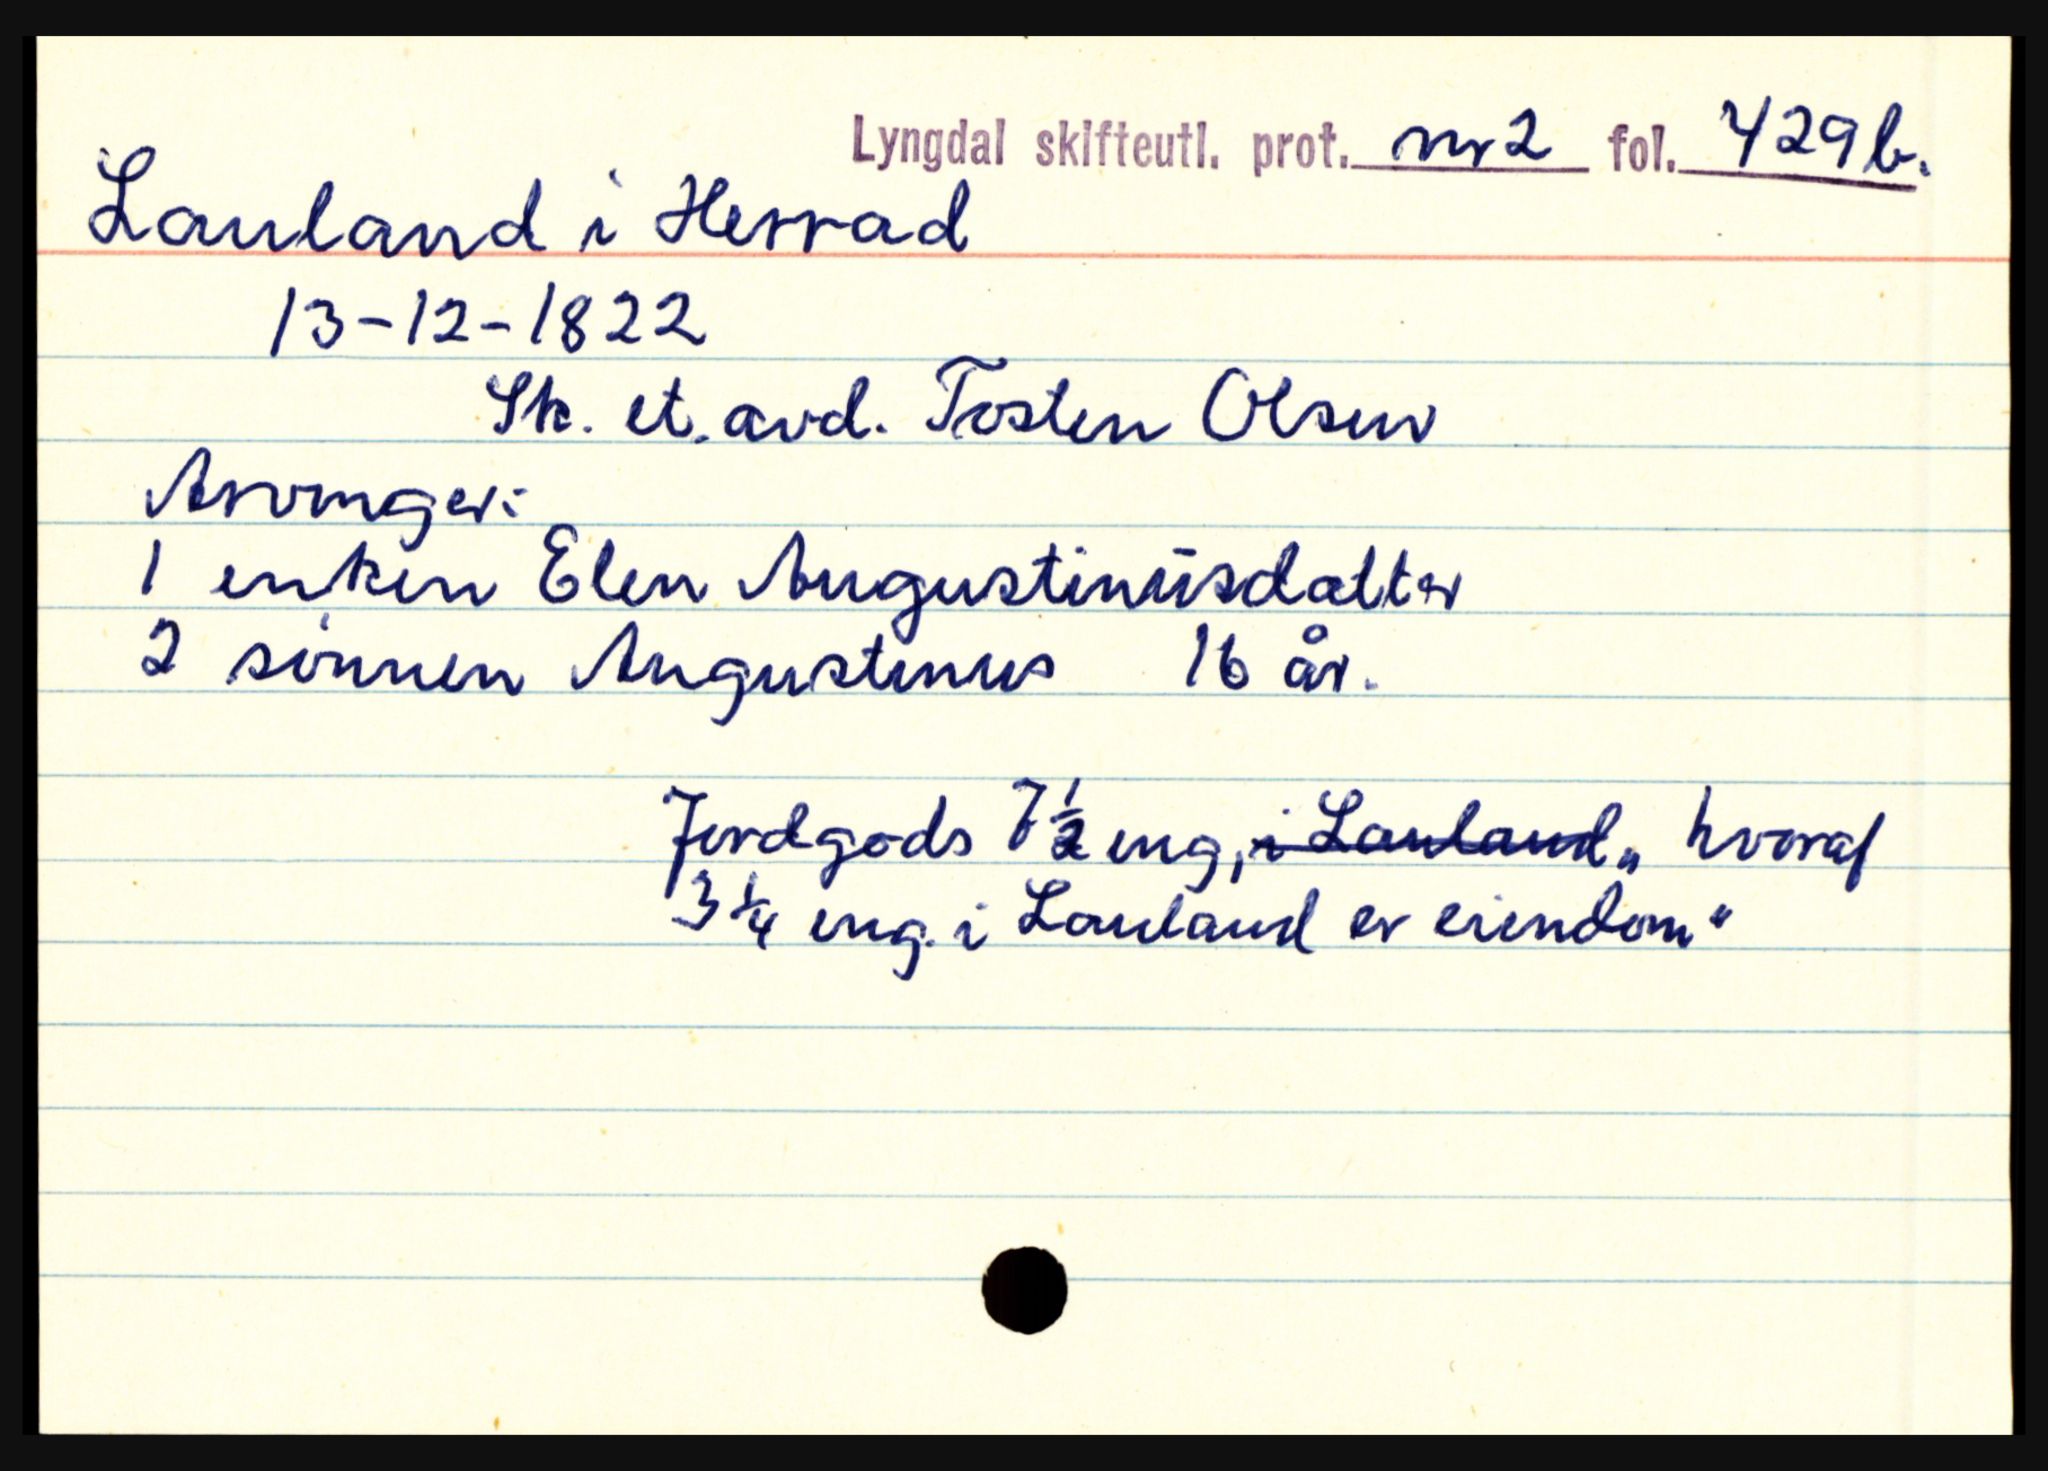 Lyngdal skifteutl. prot. nr 2 fol. 429b.
Lauland i Herrad
13-12-1822
Sk. et. avd. Tosten Olsen
Arvinger:
1 enken Elen Augustinusdatter
2 sönnen Augustinus 16 år.
Jordgods 7 1/2 eng, i Lauland „ hvoraf
3 1/4 eng. i Lauland er eiendom“